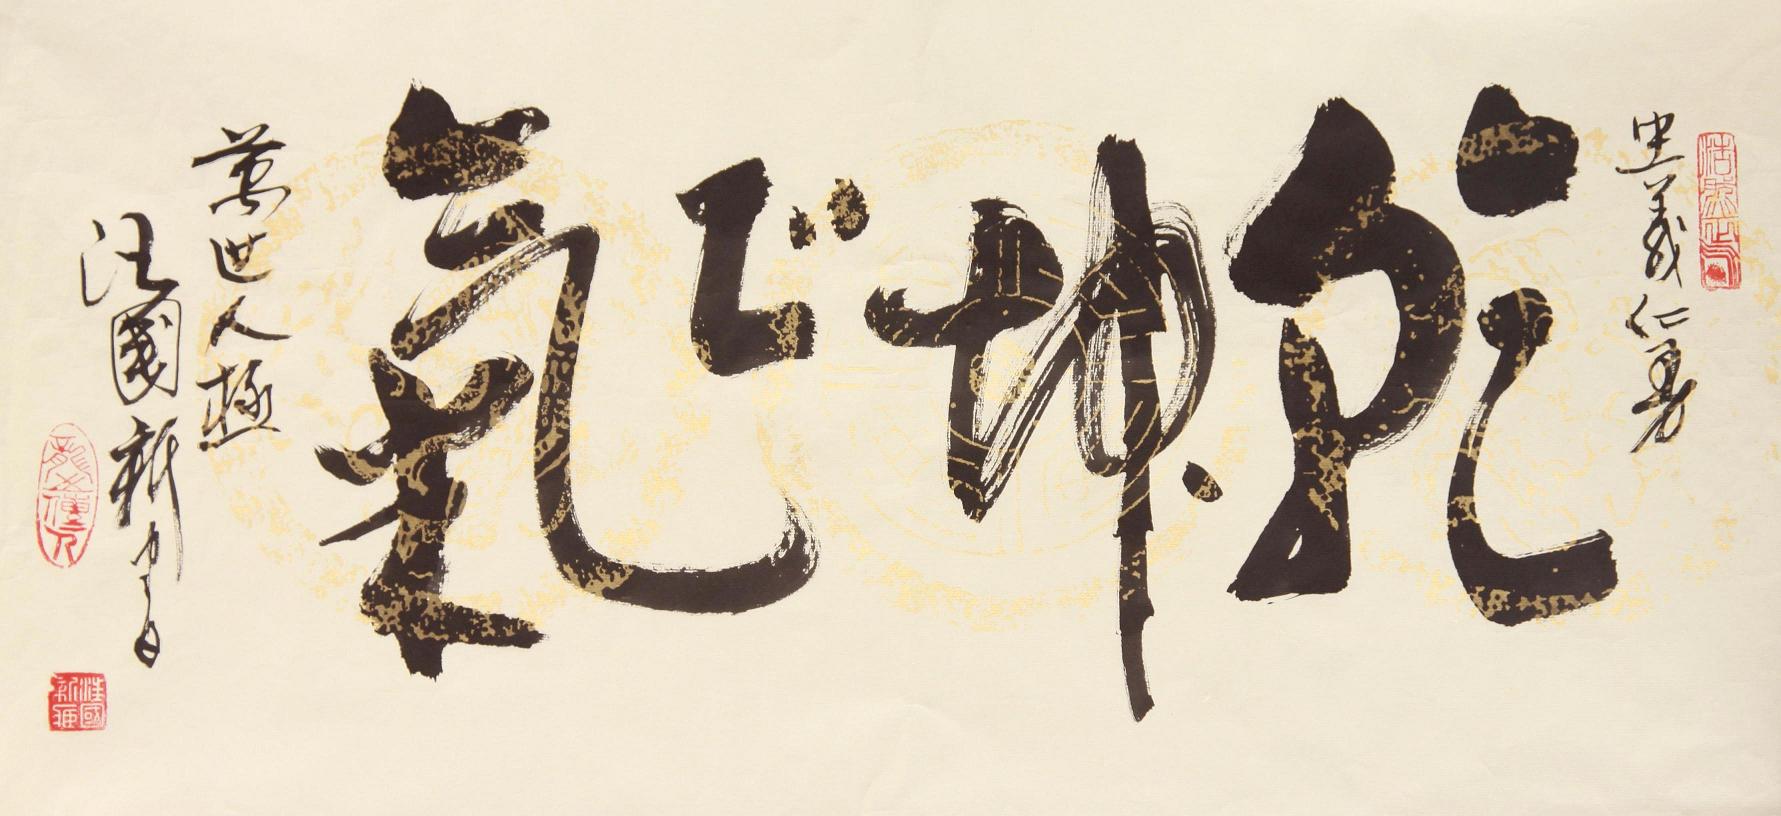 浩然正氣
忠義仁勇
乾坤正氣
萬世人極
汪國新
汪國新